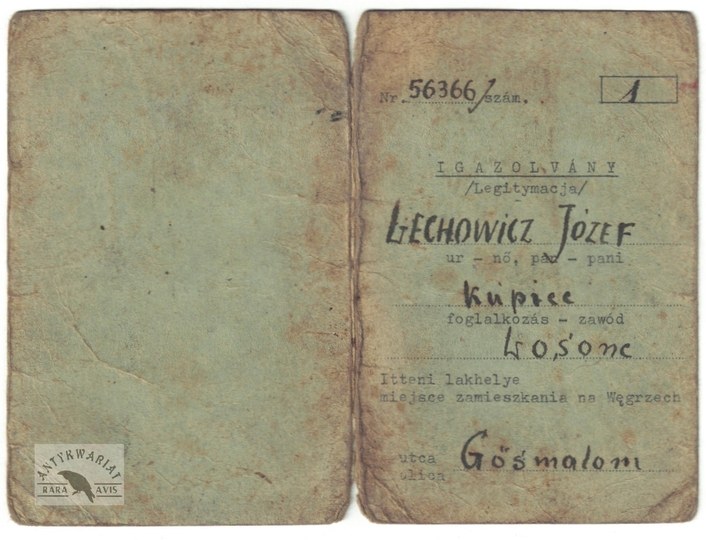 Nr. 56366/szám.
1
IGAZOLVÁNY
/Legitymacja/
LECHOWICZ JÓZEF
ur - nő, pan - pani
Kupiec
foglalkozás - zawód
Łosonc
Itteni lakhelye
miejsce zamieszkania na Węgrzech
utca Gőśmalom
ulica
ANTYKWARIAT
RARA AVIS